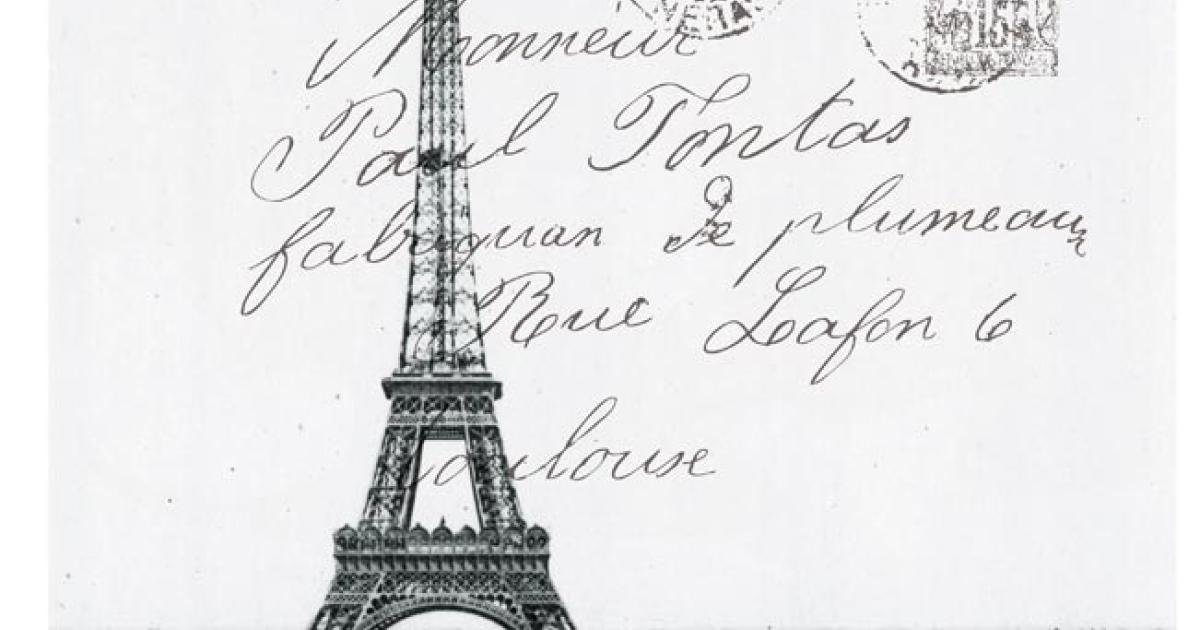 Monneur
Paul Tontas
fabriquan De plumeaux
Rue Lafon 6
Toulouse
15